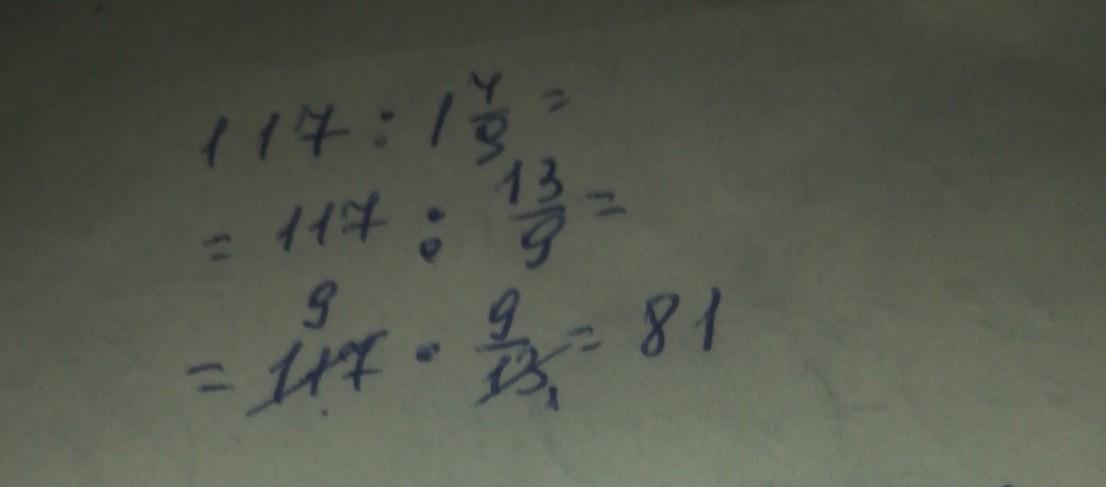 117 : 1 4/9 =
= 117 : 13/9 =
9
= 117 · 9/13 1 = 81